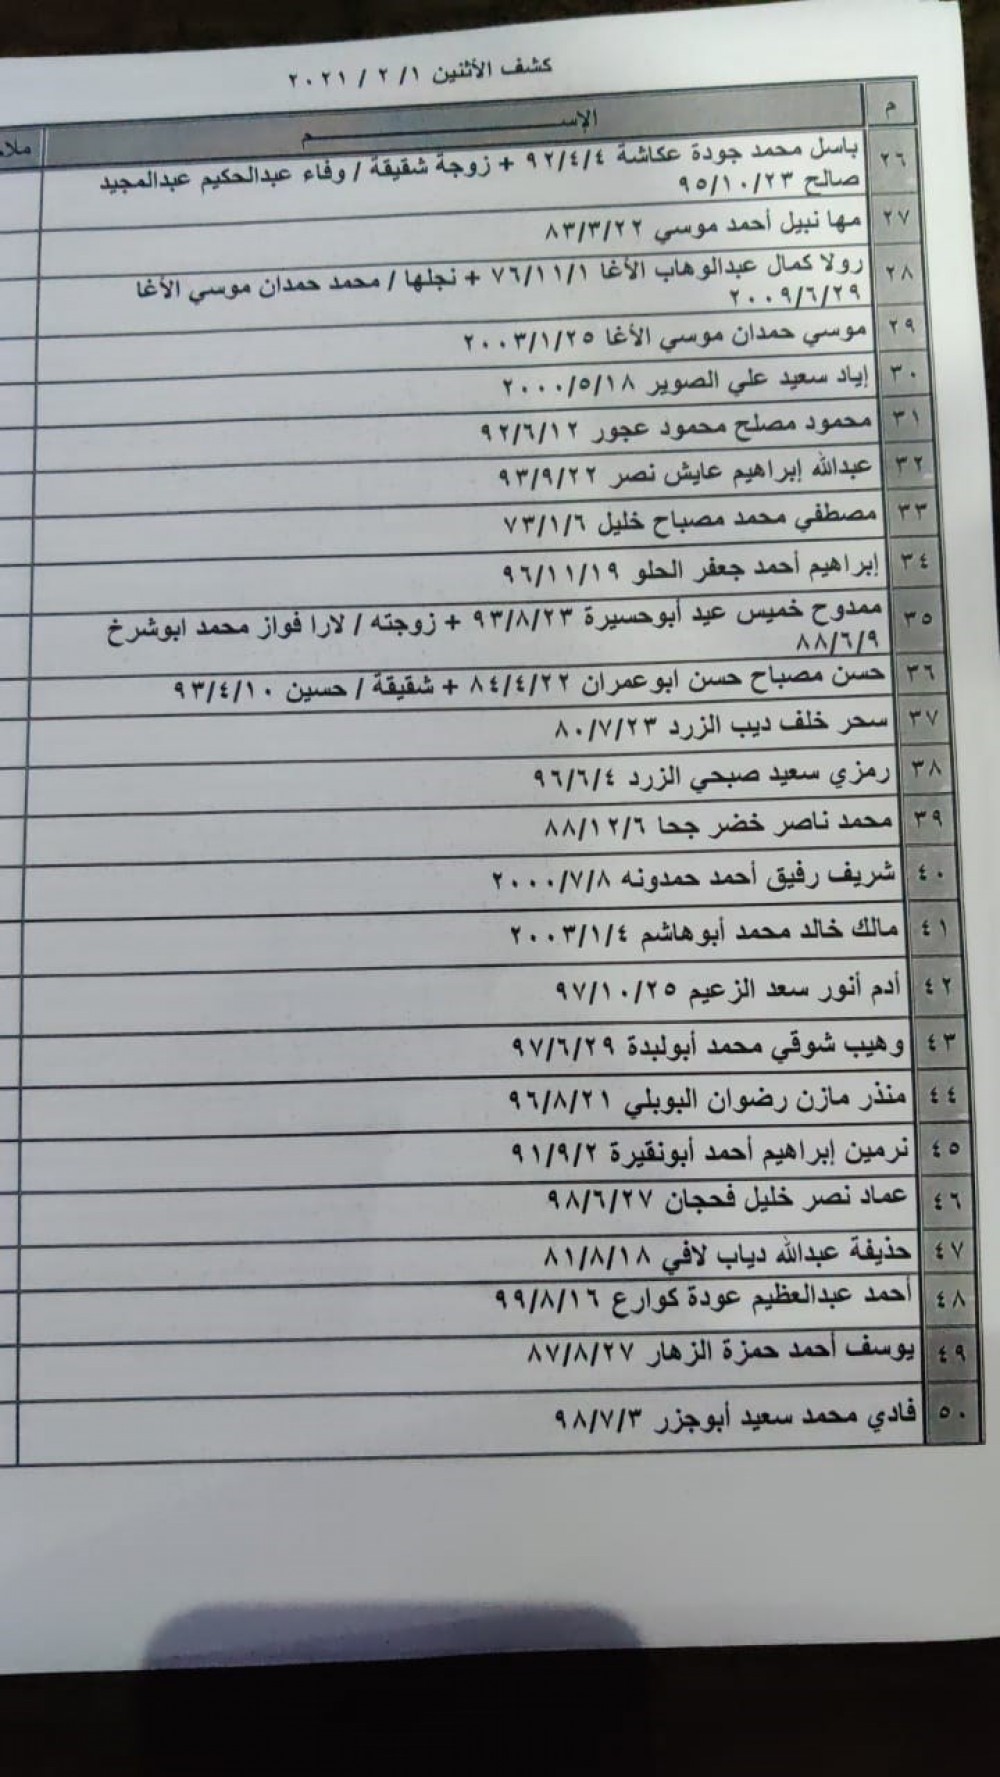 كشف الأثنين ٢٠٢١ / ٢ /١
م الإســـــــــــــم
٢٦ باسل محمد جودة عكاشة ٩٢/٤/٤ + زوجة شقيقة / وفاء عبدالحكيم عبدالمجيد
صالح ٩٥/١٠/٢٣
٢٧ مها نبيل أحمد موسي ٨٣/٣/٢٢
٢٨ رولا كمال عبدالوهاب الأغا ٧٦/١١/١ + نجلها / محمد حمدان موسي الأغا
٢٠٠٩/٦/٢٩
٢٩ موسي حمدان موسي الأغا ٢٠٠٣/١/٢٥
٣٠ إياد سعيد علي الصوير ٢٠٠٠/٥/١٨
٣١ محمود مصلح محمود عجور ٩٢/٦/١٢
٣٢ عبدالله إبراهيم عايش نصر ٩٣/٩/٢٢
٣٣ مصطفي محمد مصباح خليل ٧٣/١/٦
٣٤ إبراهيم أحمد جعفر الحلو ٩٦/١١/١٩
٣٥ ممدوح خميس عيد أبوحسيرة ٩٣/٨/٢٣ + زوجته / لارا فواز محمد ابوشرخ
٨٨/٦/٩
٣٦ حسن مصباح حسن ابوعمران ٨٤/٤/٢٢ + شقيقة / حسين ٩٣/٤/١٠
٣٧ سحر خلف ديب الزرد ٨٠/٧/٢٣
٣٨ رمزي سعيد صبحي الزرد ٩٦/٦/٤
٣٩ محمد ناصر خضر جحا ٨٨/١٢/٦
٤٠ شريف رفيق أحمد حمدونه ٢٠٠٠/٧/٨
٤١ مالك خالد محمد أبوهاشم ٢٠٠٣/١/٤
٤٢ أدم أنور سعد الزعيم ٩٧/١٠/٢٥
٤٣ وهيب شوقي محمد أبولبدة ٩٧/٦/٢٩
٤٤ منذر مازن رضوان البوبلي ٩٦/٨/٢١
٤٥ نرمين إبراهيم أحمد أبونقيرة ٩١/٩/٢
٤٦ عماد نصر خليل فحجان ٩٨/٦/٢٧
٤٧ حذيفة عبدالله دياب لافي ٨١/٨/١٨
٤٨ أحمد عبدالعظيم عودة كوارع ٩٩/٨/١٦
٤٩ يوسف أحمد حمزة الزهار ٨٧/٨/٢٧
٥٠ فادي محمد سعيد أبوجزر ٩٨/٧/٣